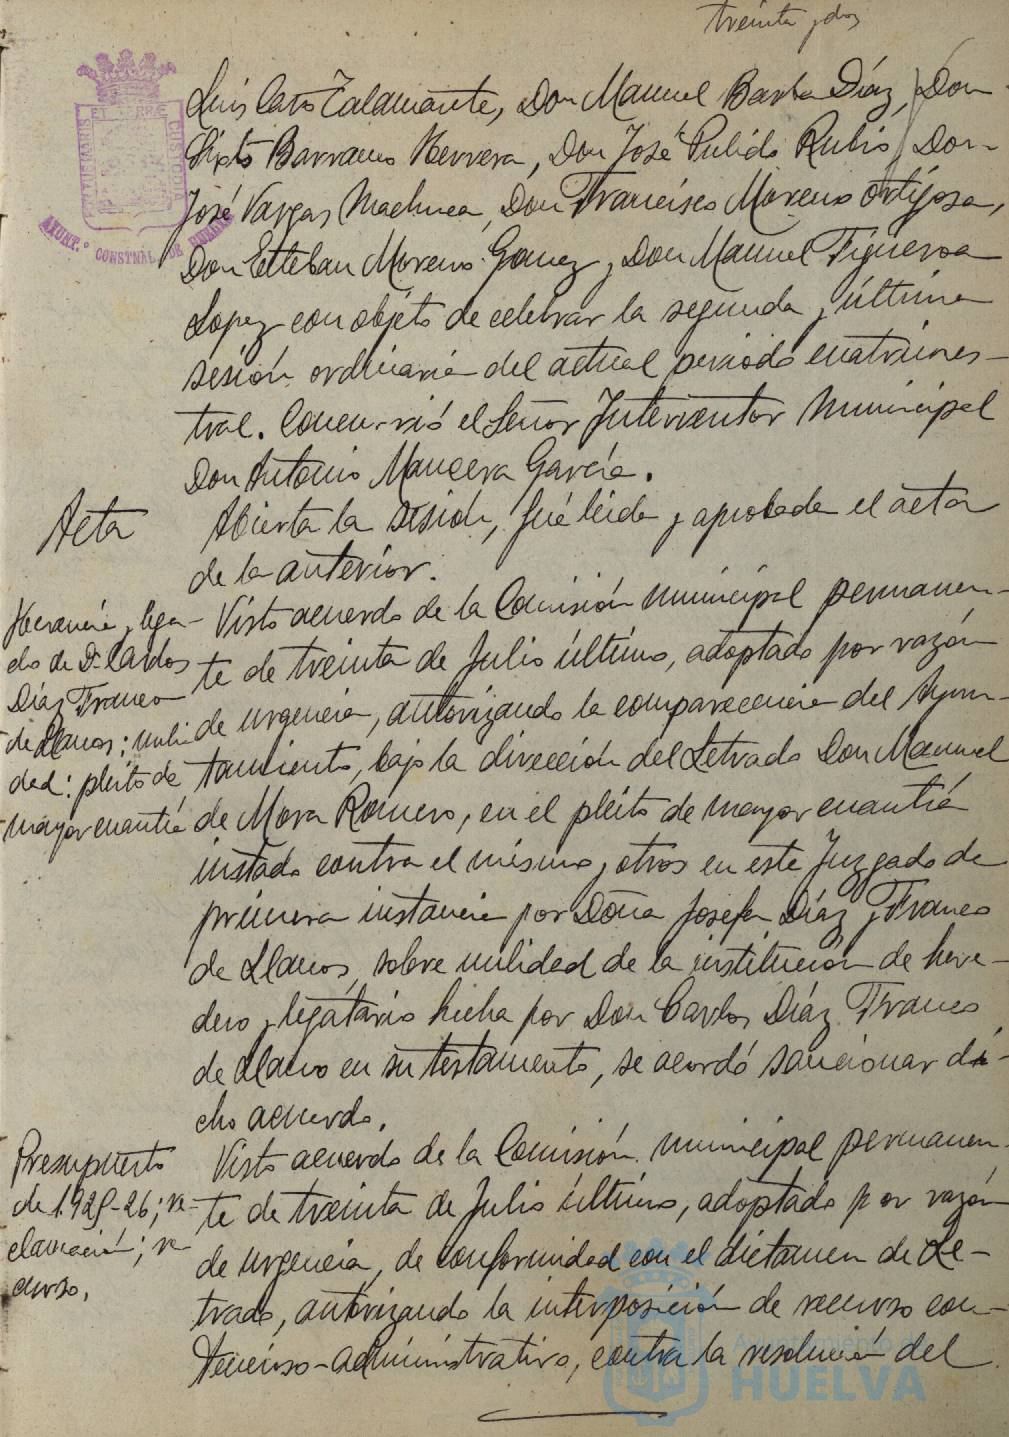 treinta y dos
Luis Cato Talamante, Don Manuel Barba Díaz, Don
Sixto Barranco Herrera, Don José Pulido Rubio, Don
José Vargas Machuca, Don Francisco Moreno Ortijosa,
Don Estteban Moreno Gomez y Don Manuel Figueroa
Lopez con objeto de celebrar la segunda y última
sesión ordinaria del actual periodo cuatrimes-
tral. Concurrió el Señor Interventor Municipal
Don Antonio Mancera García.
Acta
Abierta la sesión, fué leida y aprobada el acta
de la anterior.
Herencia y lega-
do de D. Carlos
Díaz Franco
de Llanos; nuli-
dad: pleito de
mayor cuantía
Visto acuerdo de la Comisión municipal permanen-
te de treinta de Julio último, adoptado por razón
de urgencia, autorizando la comparecencia del Ayun-
tamiento, bajo la dirección del Letrado Don Manuel
de Mora Romero, en el pleito de mayor cuantía
instado contra el mismo y otros en este Juzgado de
primera instancia por Doña Josefa Díaz y Franco
de Llanos, sobre nulidad de la institución de here-
dero y legatario hecha por Don Carlos Díaz Franco
de Llano en su testamento, se acordó sancionar di-
cho acuerdo.
Presupuesto
de 1925-26; re-
clamación; re-
curso.
Visto acuerdo de la Comisión municipal permanen-
te de treinta de Julio último, adoptado por razón
de urgencia, de conformidad con el dictamen de Le-
trado, autorizando la interposición de recurso con-
tencioso-administrativo, contra la resolución del
AYUNT.º CONSTNAL DE HUELVA
Ayuntamiento de
HUELVA